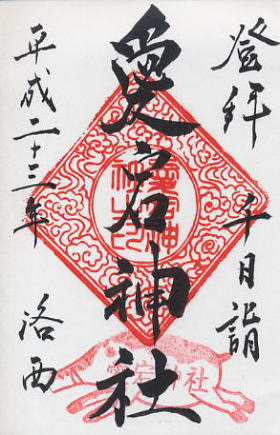 登拝 千日詣
愛宕神社
平成二十三年 洛西
愛宕神社